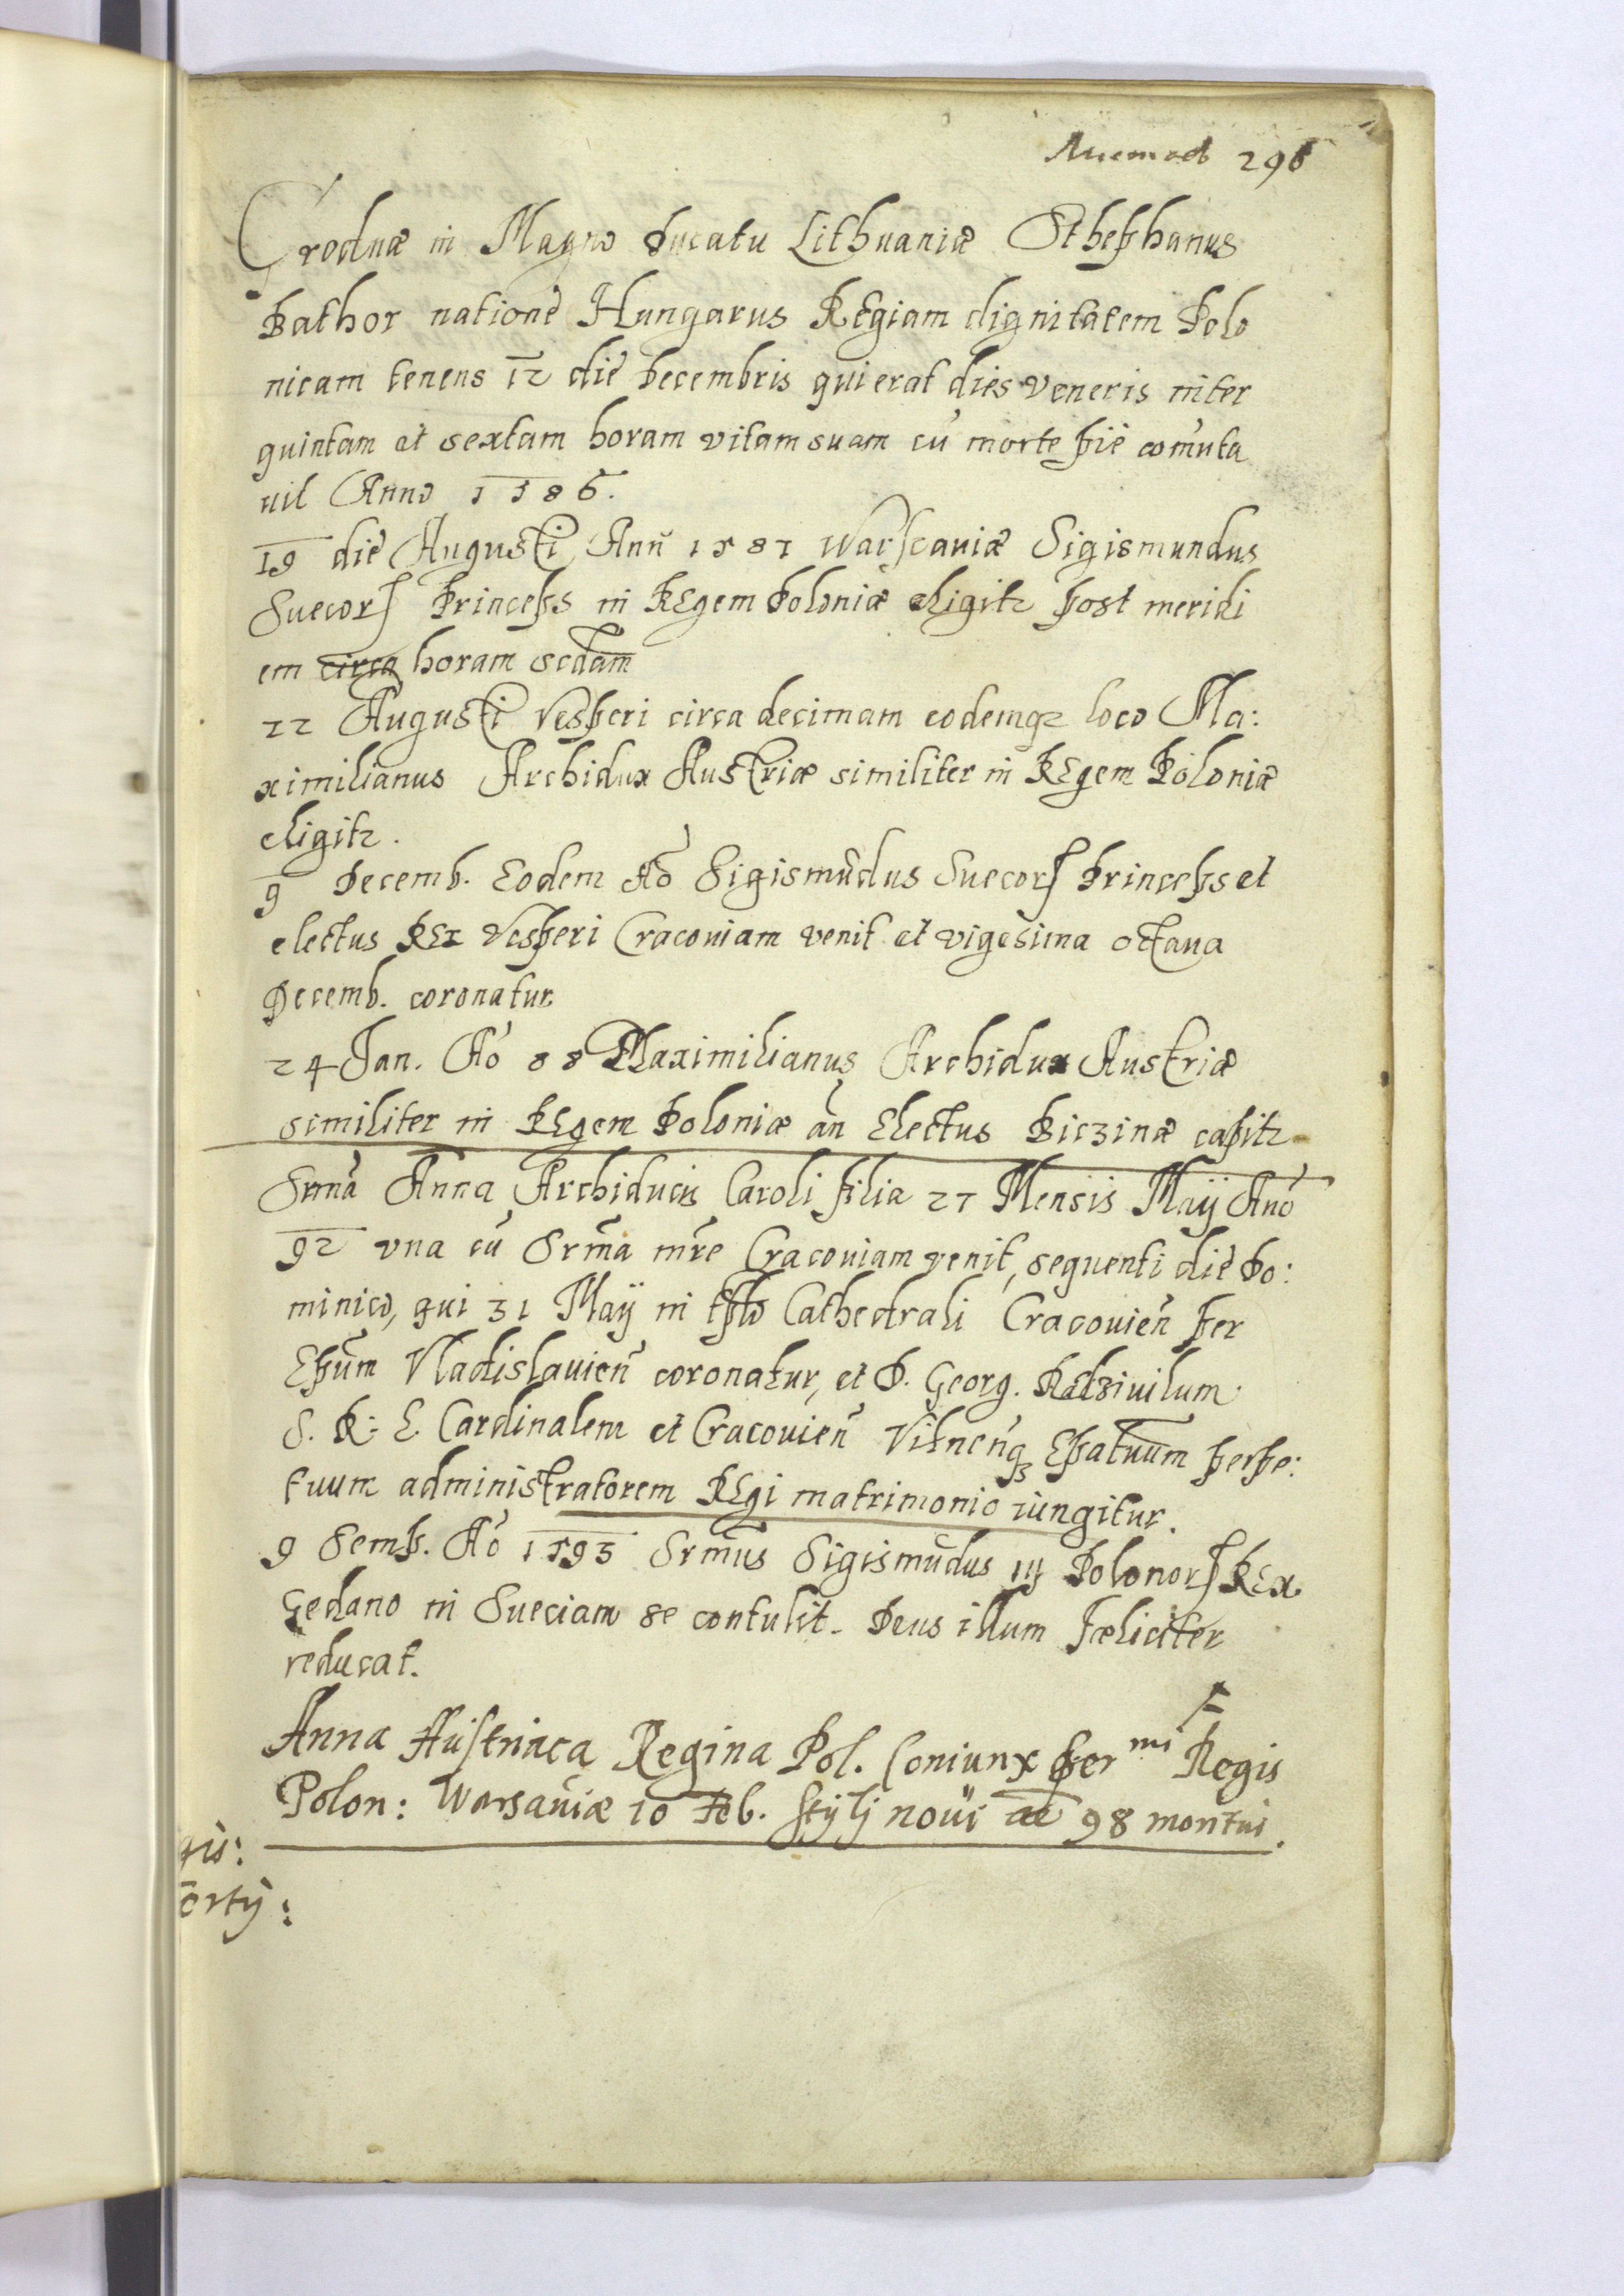 Листов 296
Grodnæ in Magno Ducatu Lithuaniæ Sthephanus
Bathor natione Hungarus REgiam dignitatem Polo
nicam tenens 12 die Decembris qui erat dies Veneris inter
quintam et sextam horam vitam suam cū morte pie com̄uta
uit Anno 1586.
19 die Augusti Anñ 1587 Warscauiæ Sigismundus
Suecorꝝ Princeps in REgem Poloniæ eligitr post meridi
em circa horam scdam
22 Augusti Vesperi circa decimam eodemqꝫ loco Ma:
ximilianus Archidux Austriæ similiter in REgem Poloniæ
eligitr.
9 Decemb. Eodem Aō Sigismūdus Suecorꝝ Princeps et
electus REx Vesperi Cracouiam venit et vigesima octaua
Decemb. coronatur
24 Jan. Aō 88 Maximilianus Archidux Austriæ
similiter in REgem Poloniæ an̄ Electus Biczinæ capitr
Srm̄a Anna Archiducis Caroli filia 27 Mensis Maÿ Anō
92 vna cū Srm̄a mr̄e Cracouiam venit, sequenti die Do:
minico, qui 31 Maÿ in tplo Cathedrali Cracouien̄ per
Epūm Vladislauien̄ coronatur, et D. Georg. Radziuilum
S. R. E. Cardinalem et Cracouien̄ Vilnen̄qꝫ Epatuūm perpe:
tuum administratorem REgi matrimonio iungitur.
9 Semp. Aō 1593 Srm̄us Sigismūdus iij Polonorꝝ REx
Gedano in Sueciam se contulit. Deus illum fæliciter
reducat.
Anna Austriaca Regina Pol. Coniunx Ser mi Regis
Polon: Warsauiæ 10 Feb. stÿlj nouï 98 mortui.
gis:
ortÿ: